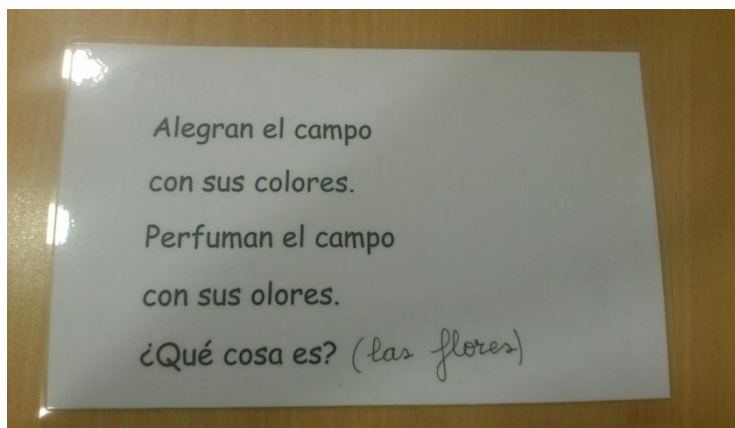 Alegran el campo
con sus colores.
Perfuman el campo
con sus olores.
¿Qué cosa es? (las flores)